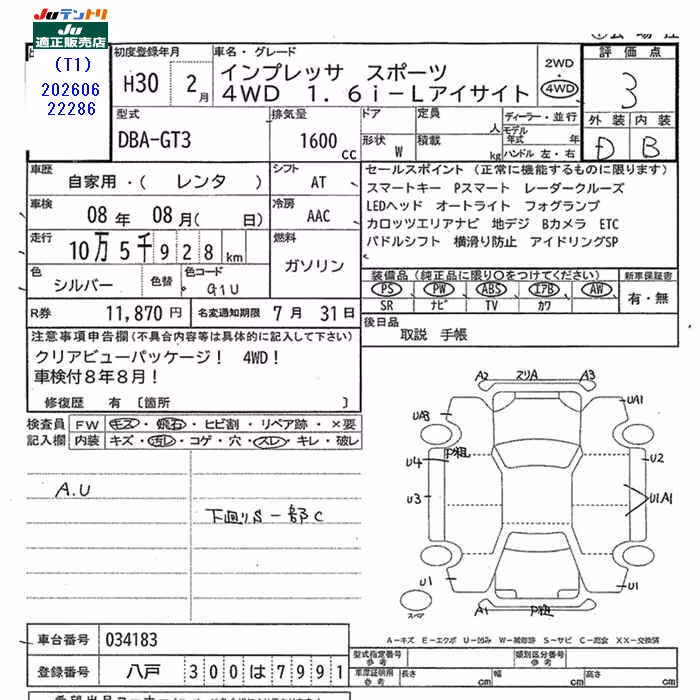 JUテントリ
JU
適正販売店
(T1)
202606
22286
初度登録年月
H30 2月
車名・グレード
インプレッサ スポーツ
4WD 1.6i-Lアイサイト
2WD・
4WD
評価点
3
外装 内装
D B
型式
DBA-GT3
排気量
1600 cc
ドア 定員 人
形状 W 積載 kg
ディーラー・並行
モデル年式 年
ハンドル 左・右
車歴
自家用・( レンタ )
シフト
AT
車検
08年 08月( 日)
冷房
AAC
走行
10万5千928km
燃料
ガソリン
色
シルバー
色替
色コード
G1U
R券 11,870円
名変通知期限 7月31日
セールスポイント (正常に機能するものに限ります)
スマートキー Pスマート レーダークルーズ
LEDヘッド オートライト フォグランプ
カロッツエリアナビ 地デジ Bカメラ ETC
パドルシフト 横滑り防止 アイドリングSP
装備品 (純正品に限り○をつけてください)
PS PW ABS エアB AW
SR ナビ TV カワ
新車保証書
有・無
後日品
取説 手帳
注意事項申告欄 (不具合内容等は具体的に記入して下さい)
クリアビューパッケージ! 4WD!
車検付8年8月!
修復歴 有 〔箇所 〕
検査員記入欄
FW キズ・飛石・ヒビ割・リペア跡・×要
内装 キズ・汚レ・コゲ・穴・スレ・キレ・破レ
A.U
下廻りS 一部C
A2 スリA A3
UA3 UA1
U4 P粗 U2
U3 U1.A1
U1 U1
スペア
A1 P粗
A-キズ E-エクボ U-凹み W-補修跡 S-サビ C-腐食 XX-交換済
車台番号 034183
登録番号 八戸 300は7991
型式指定番号 参考
類別区分番号 参考
車庫証明用 参考 長さ cm 幅 cm 高さ cm